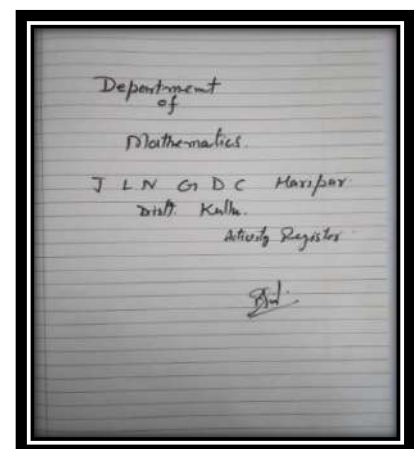 Department
of
Mathematics.
J L N G D C Haripur
Distt. Kullu.
Activity Register